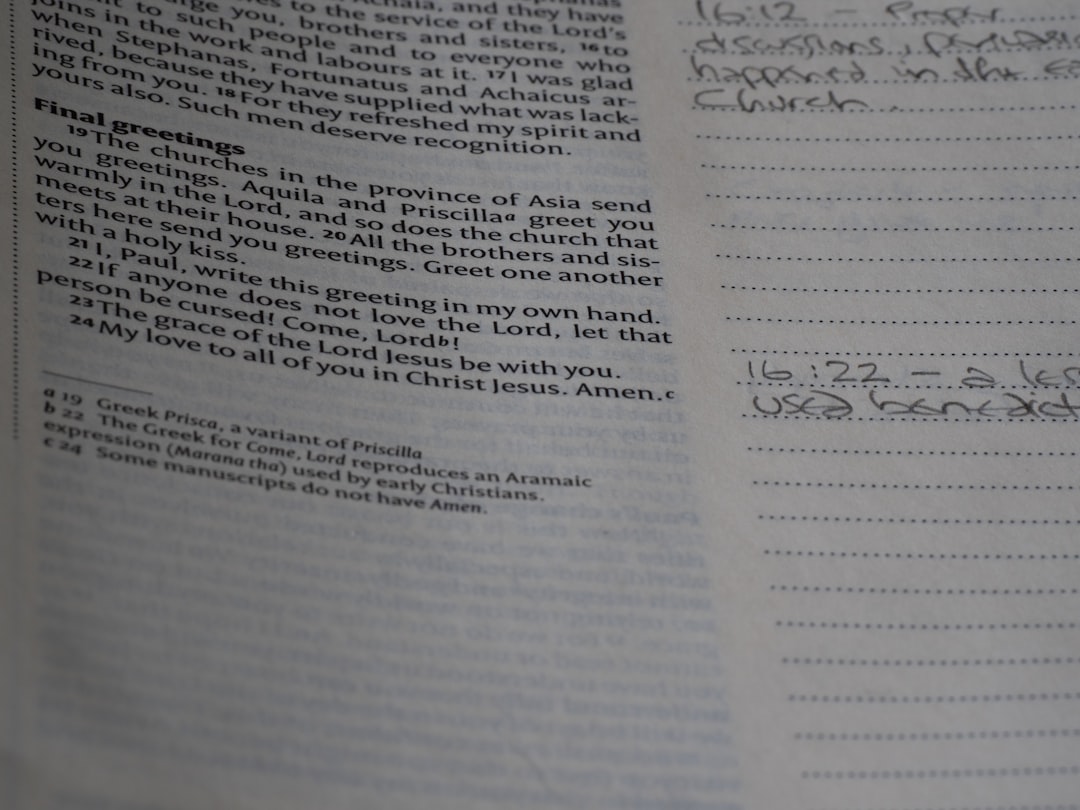 Achaia, and they have
to the service of the Lord's
urge you, brothers and sisters, 16 to
to such people and to everyone who
joins in the work and labours at it. 17 I was glad
when Stephanas, Fortunatus and Achaicus ar-
rived, because they have supplied what was lack-
ing from you. 18 For they refreshed my spirit and
yours also. Such men deserve recognition.
Final greetings
19 The churches in the province of Asia send
you greetings. Aquila and Priscilla a greet you
warmly in the Lord, and so does the church that
meets at their house. 20 All the brothers and sis-
ters here send you greetings. Greet one another
with a holy kiss.
21 I, Paul, write this greeting in my own hand.
22 If anyone does not love the Lord, let that
person be cursed! Come, Lord b!
23 The grace of the Lord Jesus be with you.
24 My love to all of you in Christ Jesus. Amen. c
a 19 Greek Prisca, a variant of Priscilla
b 22 The Greek for Come, Lord reproduces an Aramaic
expression (Marana tha) used by early Christians.
c 24 Some manuscripts do not have Amen.
16:12 – Proper
discussions,
happened in the
Church.
16:22 – a
used